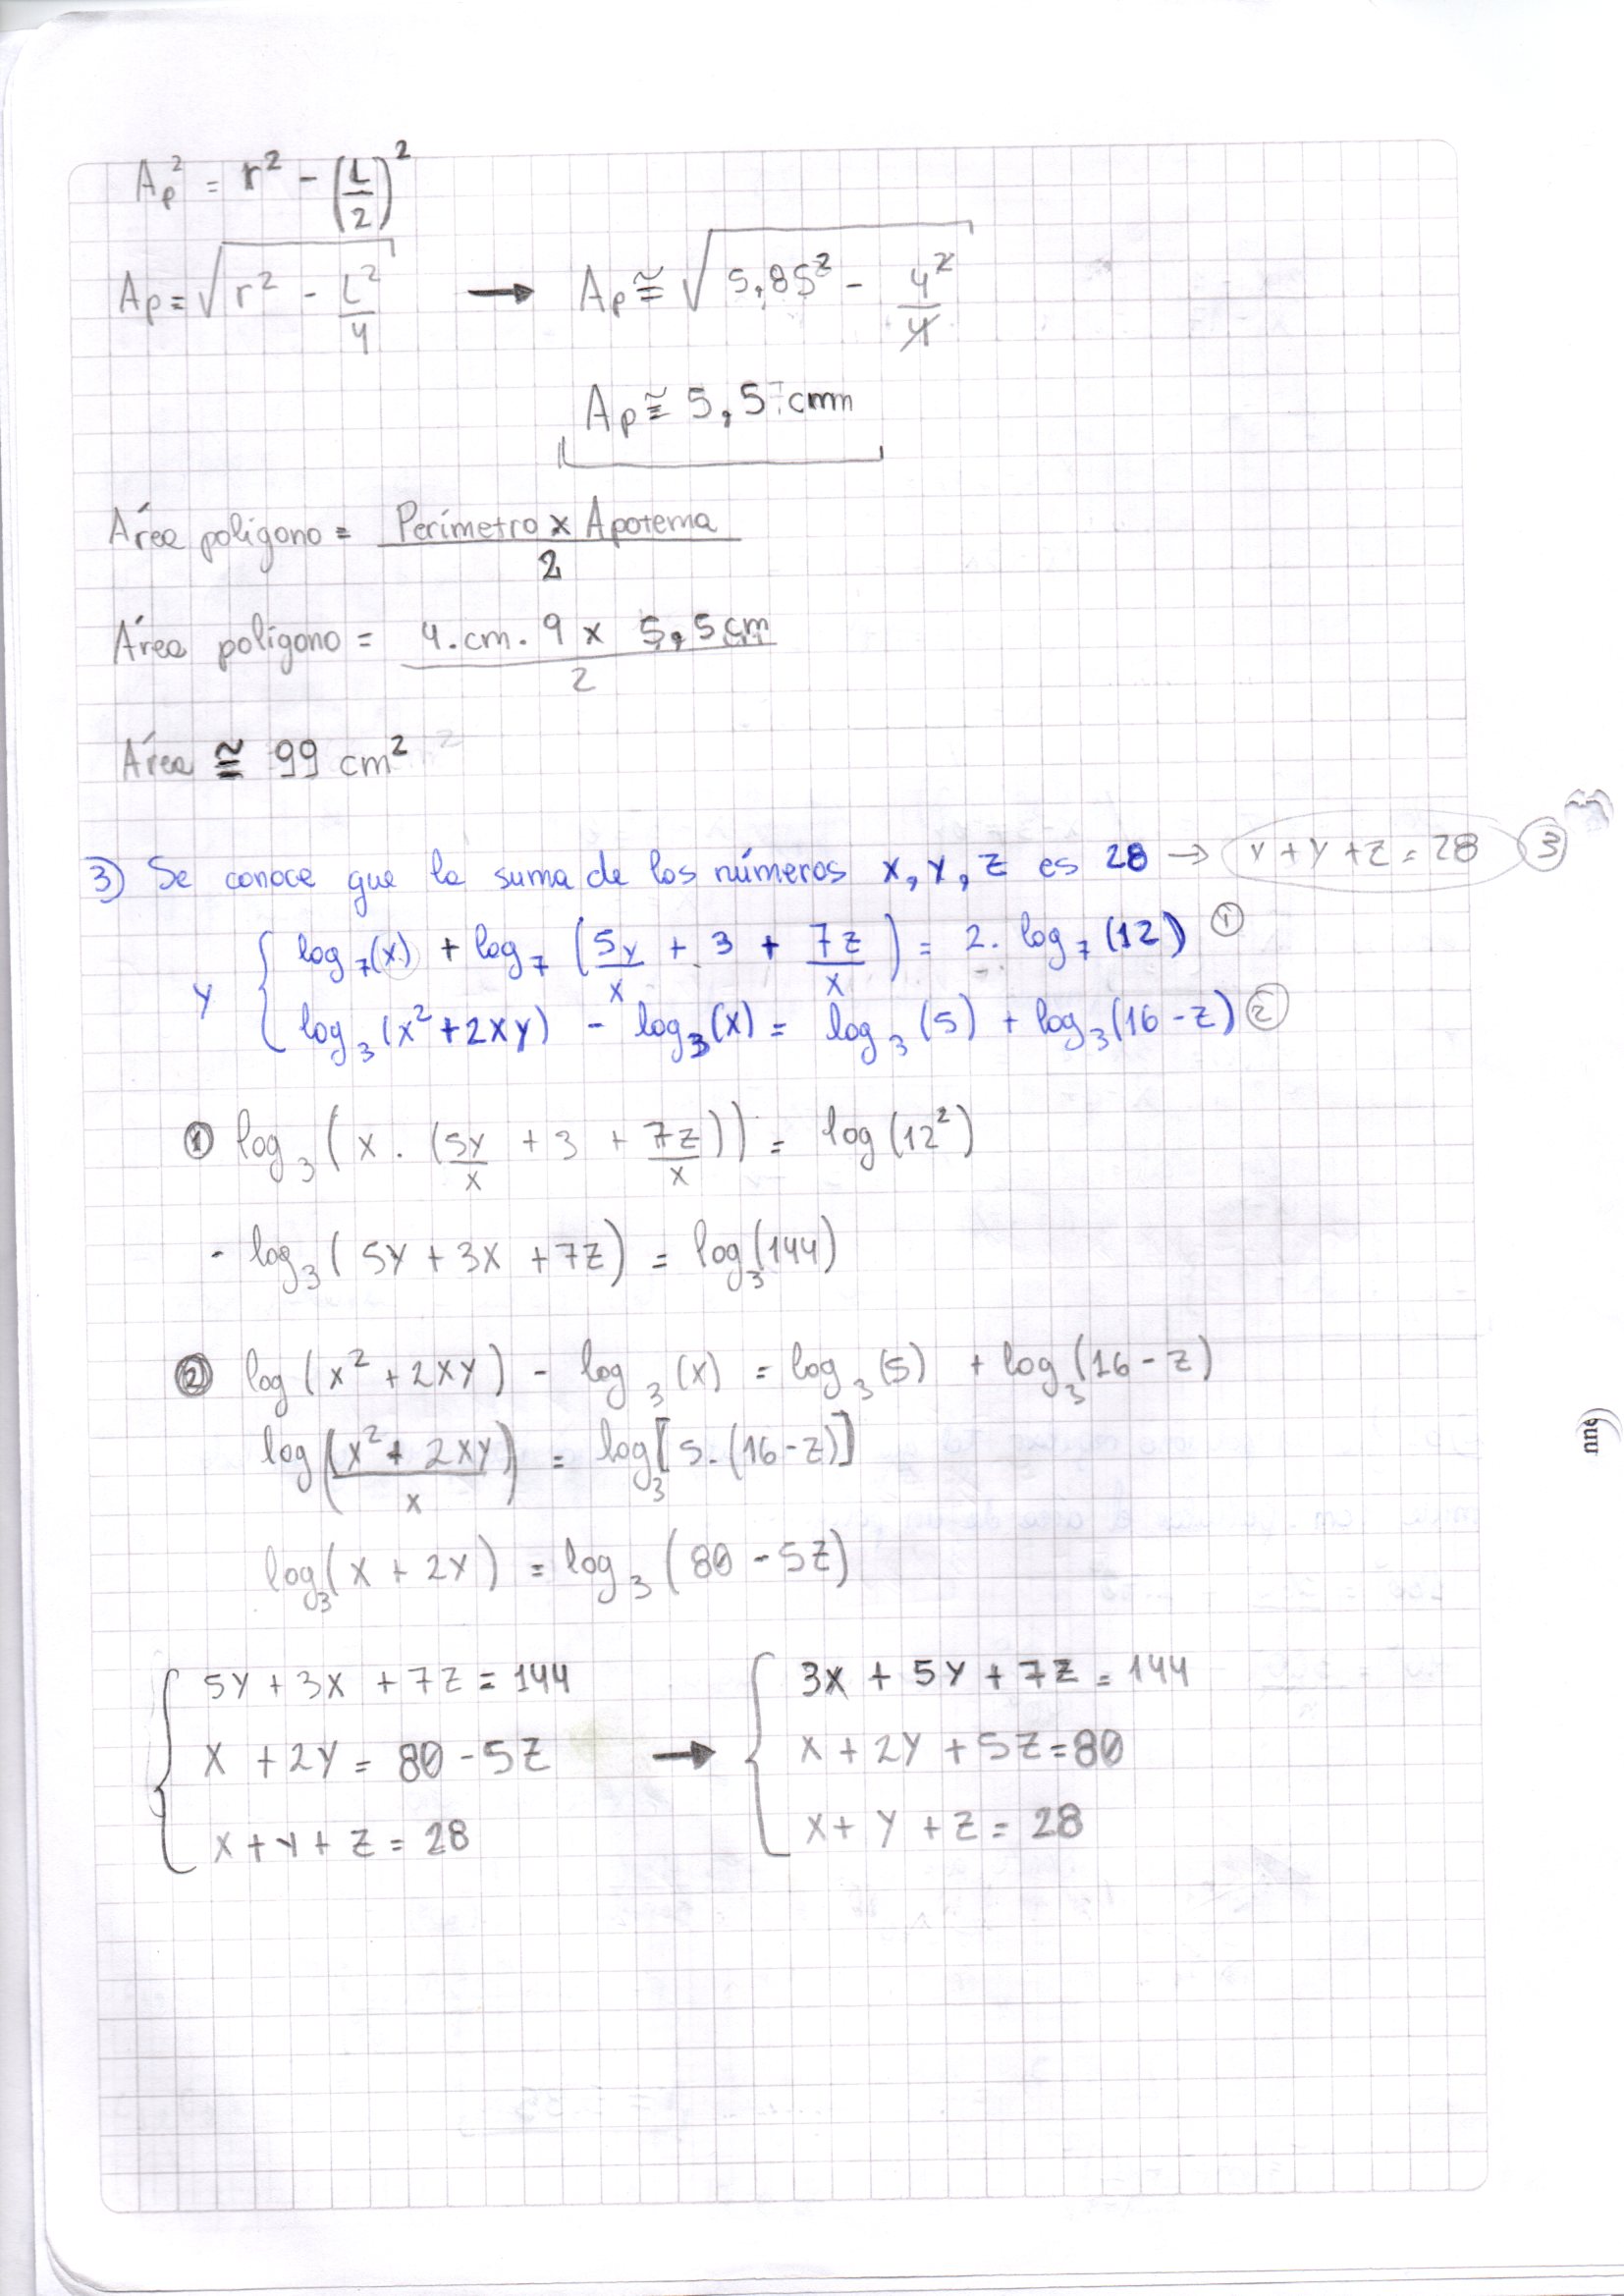 Ap² = r² - (L/2)²
Ap = √(r² - L²/4) → Ap ≅ √(5,85² - 4²/4)
Ap ≅ 5,5 cm
Área polígono = Perímetro x Apotema / 2
Área polígono = 4.cm.9 x 5,5cm / 2
Área ≅ 99 cm²
3) Se conoce que la suma de los números x, y, z es 28 → x + y + z = 28 ③
y { log₇(x) + log₇(5y/x + 3 + 7z/x) = 2. log₇(12) ①
log₃(x² + 2xy) - log₃(x) = log₃(5) + log₃(16 - z) ②
① log₃(x . (5y/x + 3 + 7z/x)) = log(12²)
- log₃(5y + 3x + 7z) = log₃(144)
② log(x² + 2xy) - log₃(x) = log₃(5) + log₃(16 - z)
log((x² + 2xy)/x) = log₃[5.(16 - z)]
log₃(x + 2y) = log₃(80 - 5z)
{ 5y + 3x + 7z = 144 → { 3x + 5y + 7z = 144
x + 2y = 80 - 5z x + 2y + 5z = 80
x + y + z = 28 x + y + z = 28